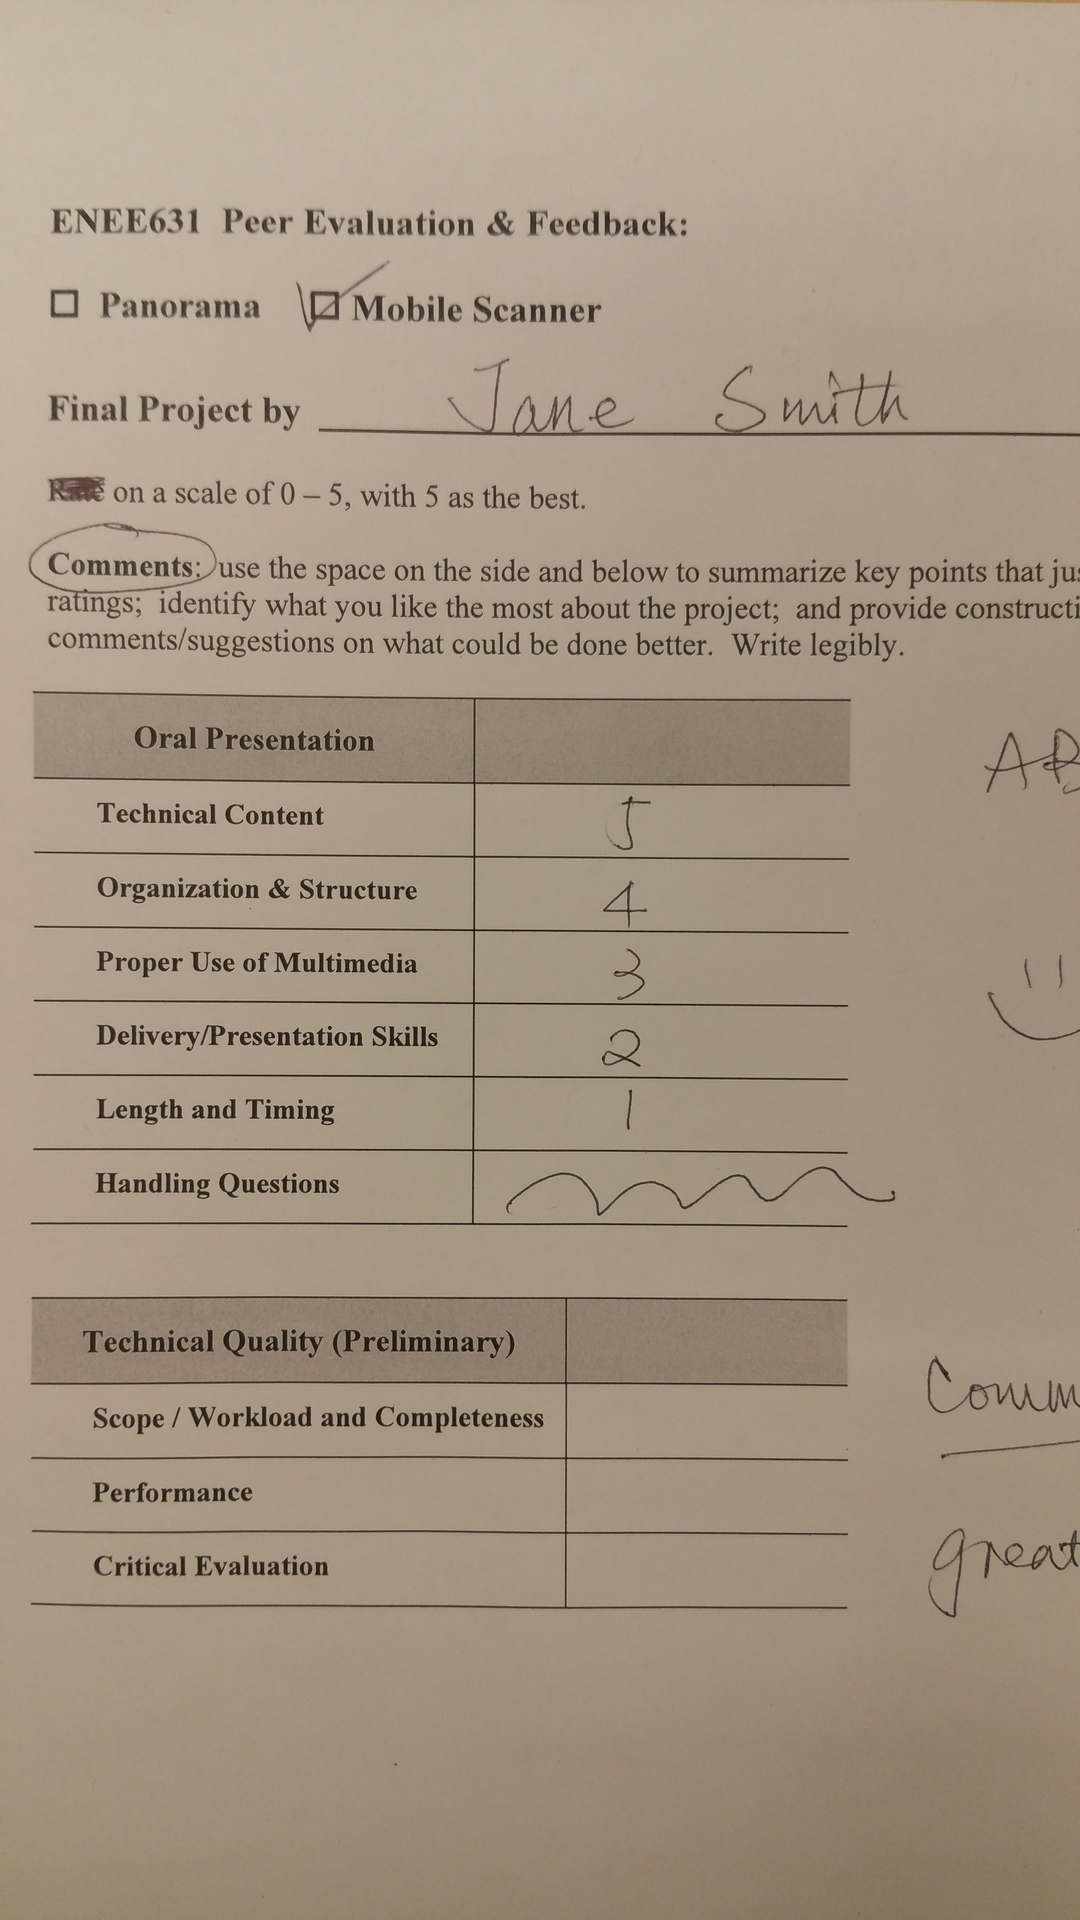 ENEE631 Peer Evaluation & Feedback:
Panorama Mobile Scanner
Final Project by Jane Smith
Rate on a scale of 0 – 5, with 5 as the best.
Comments: use the space on the side and below to summarize key points that jus
ratings; identify what you like the most about the project; and provide constructi
comments/suggestions on what could be done better. Write legibly.
Oral Presentation
AB
Technical Content 5
Organization & Structure 4
Proper Use of Multimedia 3
Delivery/Presentation Skills 2
Length and Timing 1
Handling Questions
Technical Quality (Preliminary)
Comm
Scope / Workload and Completeness
Performance
Critical Evaluation
great